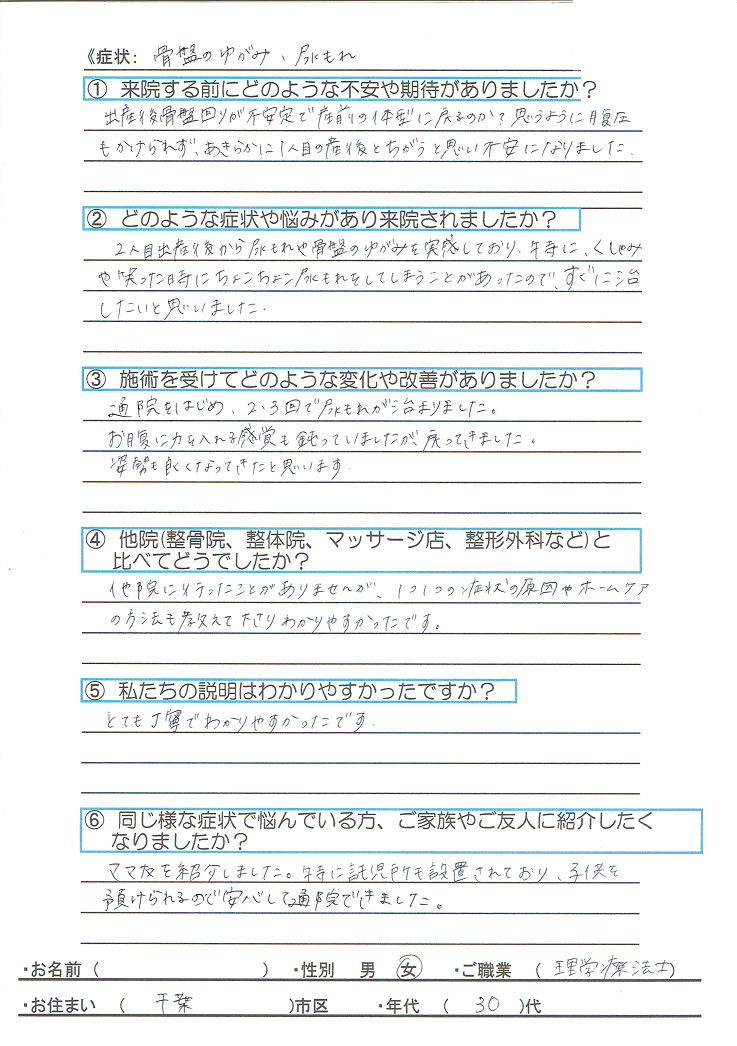 《症状: 骨盤のゆがみ、尿もれ
① 来院する前にどのような不安や期待がありましたか？
出産後骨盤回りが不安定で産前の体型に戻るのか？思うように腹圧
もかけられず、あきらかに1人目の産後とちがうと思い不安になりました。
② どのような症状や悩みがあり来院されましたか？
2人目出産後から尿もれや骨盤のゆがみを実感しており、特に、くしゃみ
や笑った時にちょこちょこ尿もれをしてしまうことがあったので、すぐに治
したいと思いました。
③ 施術を受けてどのような変化や改善がありましたか？
通院をはじめ、2・3回で尿もれが治まりました。
お腹に力を入れる感覚も鈍っていましたが、戻ってきました。
姿勢も良くなってきたと思います。
④ 他院(整骨院、整体院、マッサージ店、整形外科など)と
比べてどうでしたか？
他院に行ったことがありませんが、1つ1つの症状の原因やホームケア
の方法も教えて下さりわかりやすかったです。
⑤ 私たちの説明はわかりやすかったですか？
とても丁寧でわかりやすかったです。
⑥ 同じ様な症状で悩んでいる方、ご家族やご友人に紹介したく
なりましたか？
ママ友を紹介しました。特に託児所も設置されており、子供を
預けられるので安心して通院できました。
・お名前（ ） ・性別 男 女 ・ご職業 （ 理学療法士）
・お住まい （ 千葉 ）市区 ・年代 （ 30 ）代